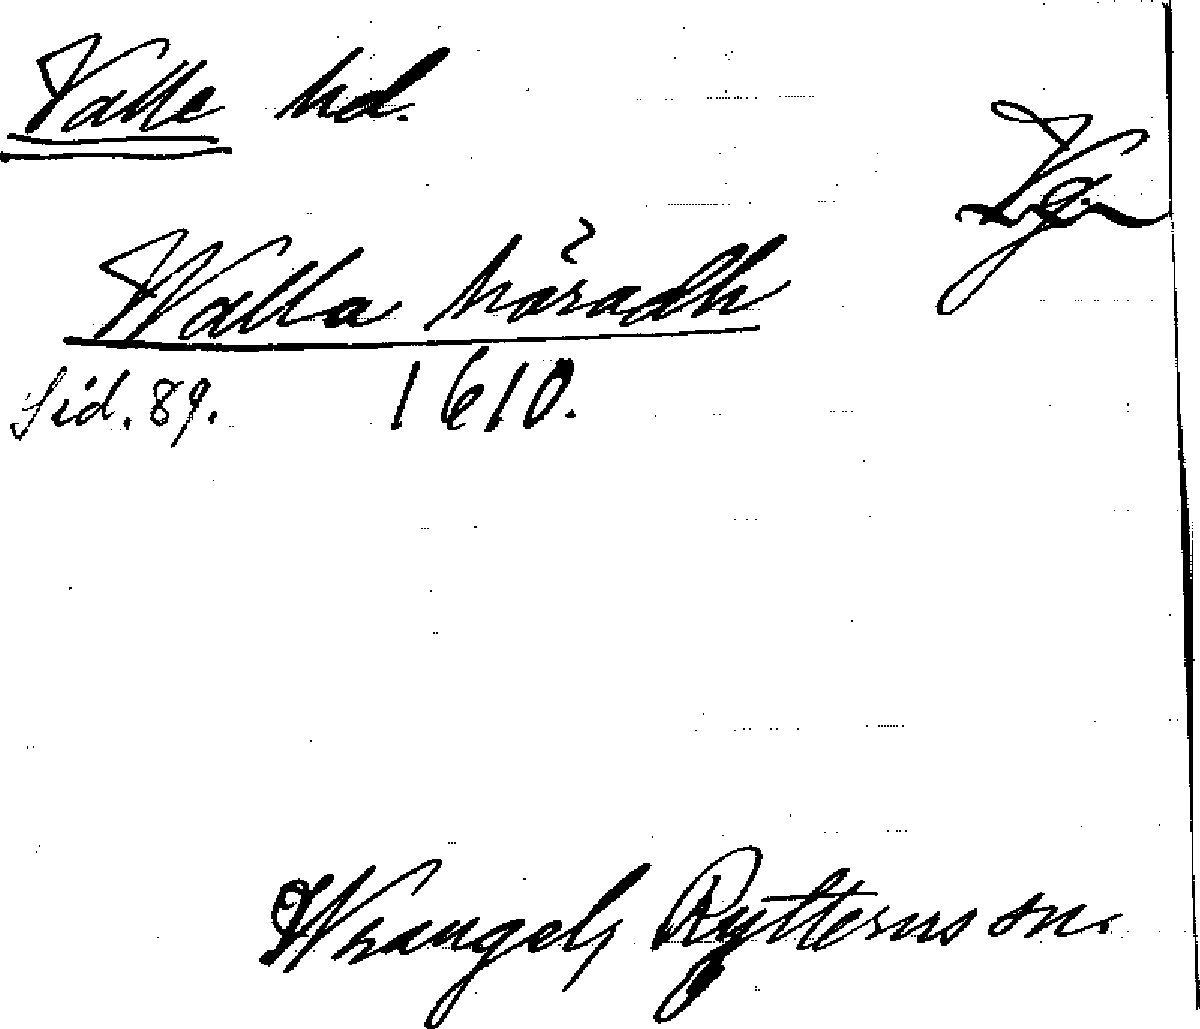 Valle hd.
Vg.
Walla häradh
Sid. 89. 1610.
Wrangels